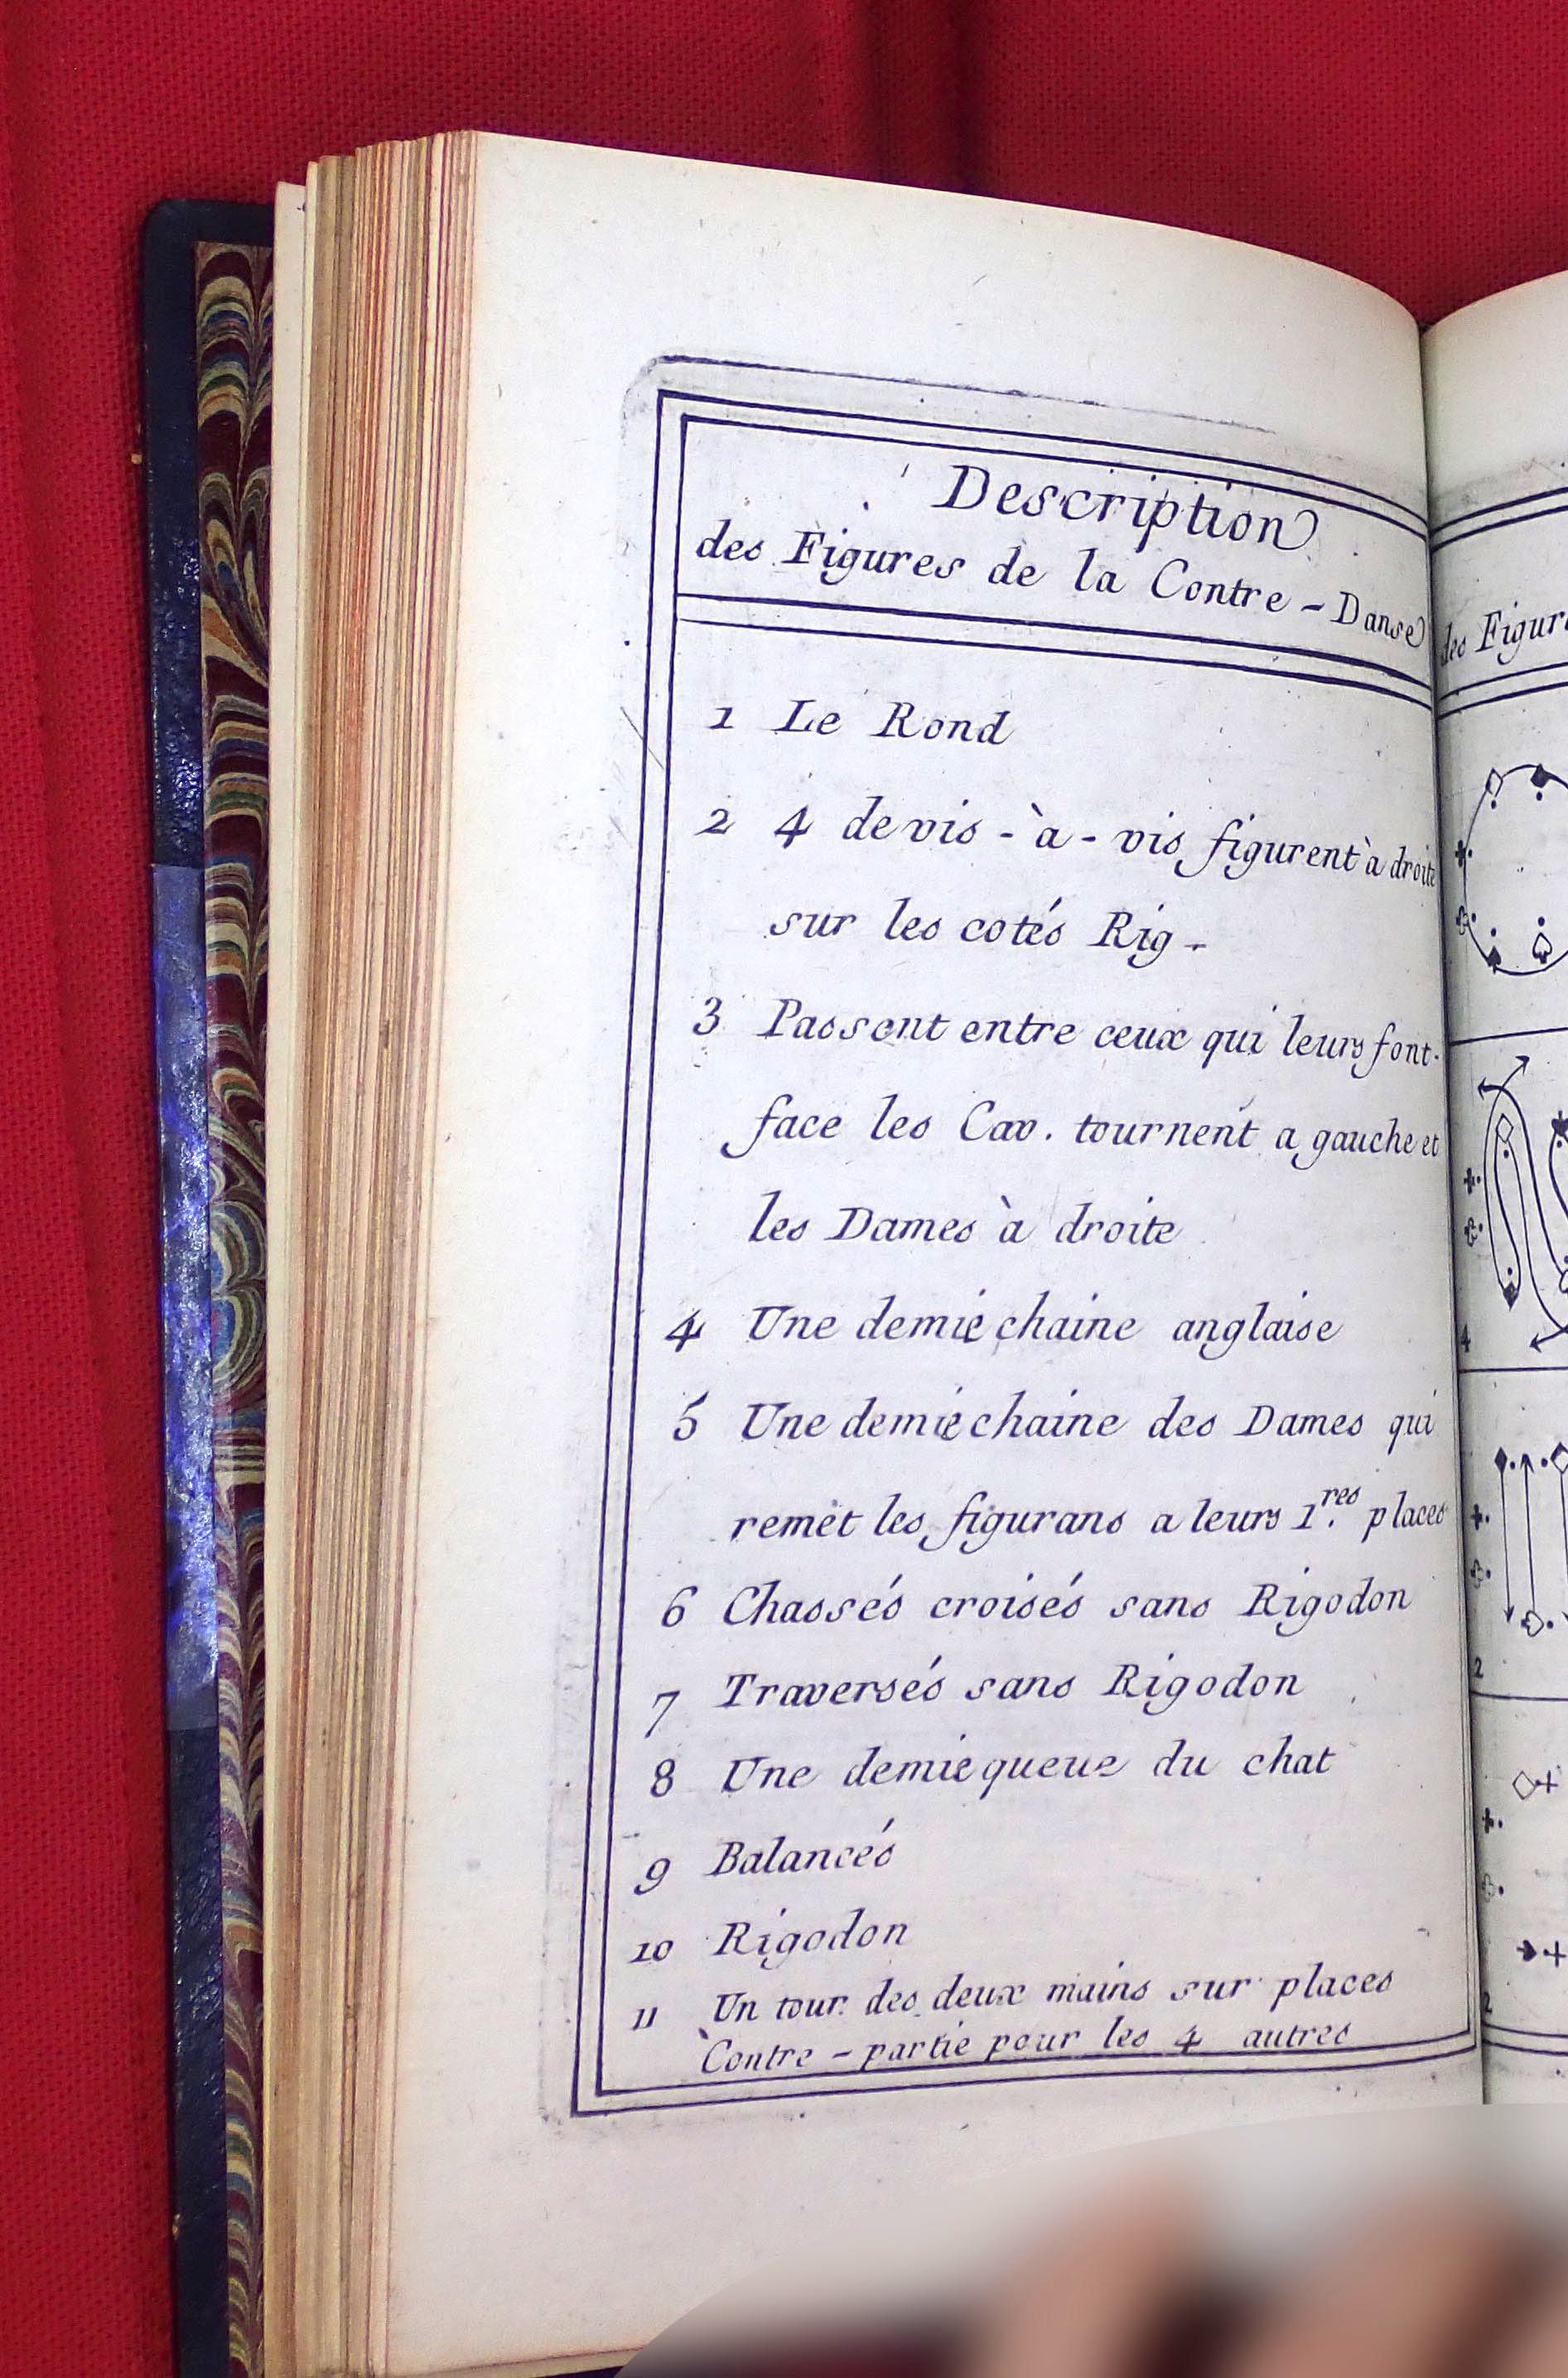 Description
des Figures de la Contre - Danse
1 Le Rond
2 4 de vis - à - vis figurent à droite
sur les cotés Rig -
3 Passent entre ceux qui leurs font
face les Cav. tournent a gauche et
les Dames à droite
4 Une demie chaine anglaise
5 Une demie chaine des Dames qui
remet les figurans a leurs 1.res places
6 Chassés croisés sans Rigodon
7 Traversés sans Rigodon
8 Une demie queue du chat
9 Balancés
10 Rigodon
11 Un tour des deux mains sur places
Contre - partie pour les 4 autres
des
4
2
2